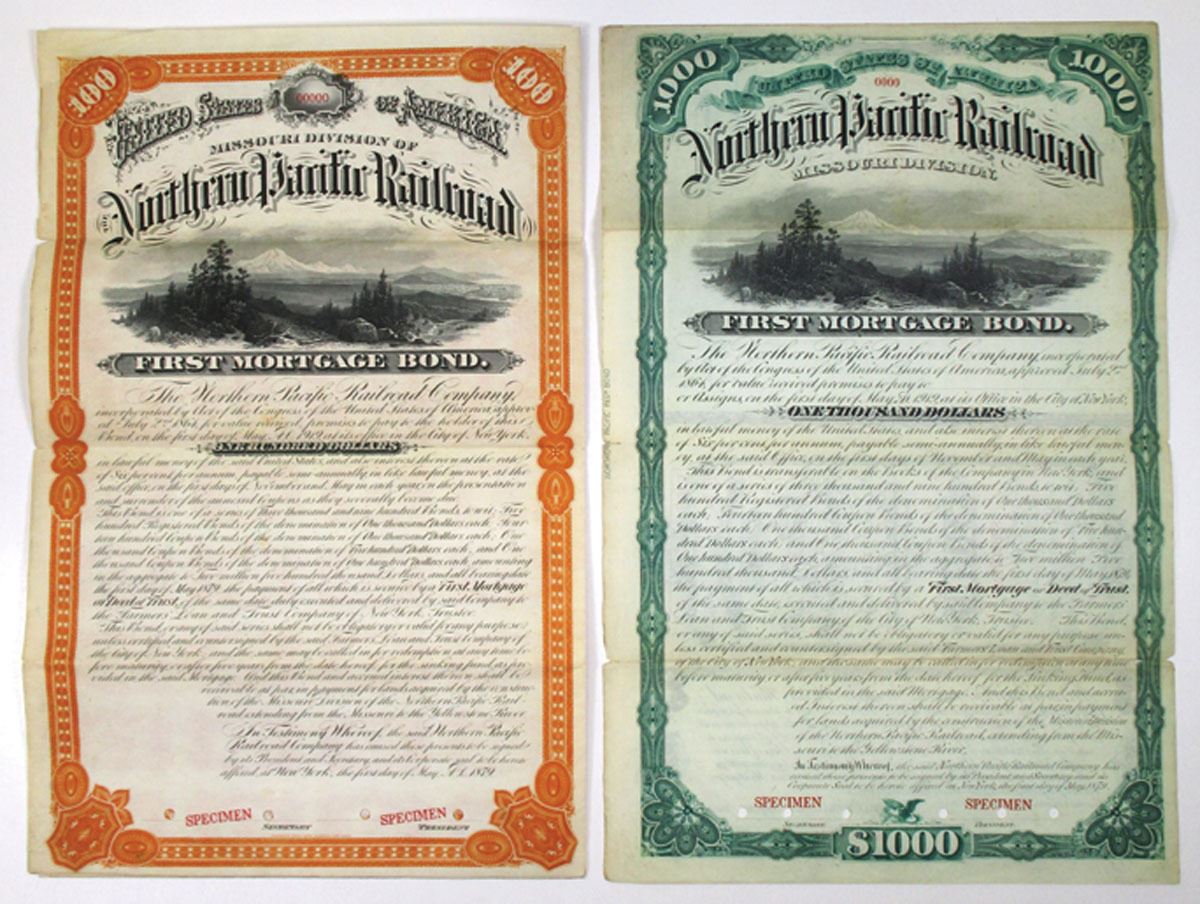 100
100
00000
UNITED STATES OF AMERICA.
MISSOURI DIVISION OF
THE Northern Pacific Railroad
FIRST MORTGAGE BOND.
The Northern Pacific Railroad Company,
incorporated by Act of the Congress of the United States of America, approv-
ed July 2nd 1864, for value received, promises to pay to the holder of this
Bond, on the first day of May, A.D. 1919, at its Office in the City of New York,
ONE HUNDRED DOLLARS
in lawful money of the said United States, and also interest thereon at the rate
of Six per cent per annum, payable semi-annually, in like lawful money, at the
said Office, on the first days of November and May in each year, on the presentation
and surrender of the annexed Coupons as they severally become due.
This Bond is one of a series of Three thousand and nine hundred Bonds, to wit: Five
hundred Registered Bonds of the denomination of One thousand Dollars each, Four-
teen hundred Coupon Bonds of the denomination of One thousand Dollars each, One
thousand Coupon Bonds of the denomination of Five hundred Dollars each, and One
thousand Coupon Bonds of the denomination of One hundred Dollars each, amounting
in the aggregate to Two million five hundred thousand Dollars, and all bearing date
the first day of May 1879, the payment of all which is secured by a First Mortgage
or Deed of Trust, of the same date, duly executed and delivered by said Company to
the Farmers Loan and Trust Company of New York, Trustee.
This Bond, or any of said series, shall not be obligatory or valid for any purpose
unless certified and countersigned by the said Farmers Loan and Trust Company of
the City of New York, and the same may be called in for redemption at any time be-
fore maturity, or after five years from the date hereof, for the sinking fund, as pro-
vided in the said Mortgage. And this Bond and accrued interest thereon shall be
receivable at par, in payment for lands acquired by the construc-
tion of the Missouri Division of the Northern Pacific Rail-
road extending from the Missouri to the Yellowstone River.
In Testimony Whereof, the said Northern Pacific
Railroad Company has caused these presents to be signed
by its President and Secretary, and its Corporate seal to be hereto
affixed, at New York, the first day of May, A.D. 1879.
SPECIMEN
SECRETARY
SPECIMEN
PRESIDENT
1000
1000
UNITED STATES OF AMERICA.
0000
Northern Pacific Railroad
MISSOURI DIVISION.
FIRST MORTGAGE BOND.
The Northern Pacific Railroad Company, incorporated
by Act of the Congress of the United States of America, approved July 2nd
1864, for value received promises to pay to
or Assigns, on the first day of May, 1919, at its Office in the City of New York,
ONE THOUSAND DOLLARS
in lawful money of the United States, and also interest thereon at the rate
of Six per cent per annum, payable semi-annually, in like lawful mon-
ey, at the said Office, on the first days of November and May in each year.
This Bond is transferable on the Books of the Company in New York, and
is one of a series of three thousand and nine hundred Bonds, to wit: Five
hundred Registered Bonds of the denomination of One thousand Dollars
each, Fourteen hundred Coupon Bonds of the denomination of One thousand
Dollars each, One thousand Coupon Bonds of the denomination of Five hun-
dred Dollars each, and One thousand Coupon Bonds of the denomination of
One hundred Dollars each, amounting in the aggregate to Two million Five
hundred thousand Dollars, and all bearing date the first day of May 1879,
the payment of all which is secured by a First Mortgage or Deed of Trust,
of the same date, executed and delivered by said Company to the Farmers
Loan and Trust Company of the City of New York, Trustee. This Bond,
or any of said series, shall not be obligatory or valid for any purpose un-
less certified and countersigned by the said Farmers Loan and Trust Company
of the City of New York, and the same may be called in for redemption at any time
before maturity or after five years from the date hereof for the Sinking Fund, as
provided in the said Mortgage. And this Bond and accru-
ed Interest thereon shall be receivable at par in payment
for lands acquired by the construction of the Missouri Division
of the Northern Pacific Railroad, extending from the Mis-
souri to the Yellowstone River.
In Testimony Whereof, the said Northern Pacific Railroad Company has
caused these presents to be signed by its President and Secretary and its
Corporate Seal to be hereto affixed, in New York, the first day of May, 1879.
SPECIMEN
SECRETARY
SPECIMEN
PRESIDENT
$1000